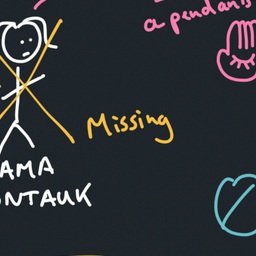 a pendant
Missing
AMA
ONTAUK